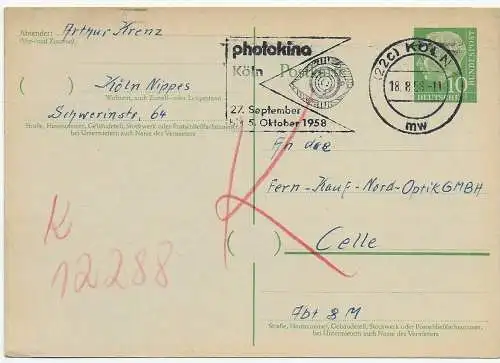 Absender: Arthur Krenz
photokina
Köln
Postkarte
27. September
bis 5. Oktober 1958
(22c) KÖLN
18.8.58-11
mw
10
DEUTSCHE
BUNDESPOST
( )
Köln Nippes
Wohnort, auch Zustell- oder Leitpostamt
Schwerinstr. 64
Straße, Hausnummer, Gebäudeteil, Stockwerk oder Postschließfachnummer;
bei Untermietern auch Name des Vermieters
An die
Fern-Kauf-Nord-Optik GMBH
K
12288
K
( )
Celle
Abt 8 M
Straße, Hausnummer, Gebäudeteil, Stockwerk oder Postschließfachnummer,
bei Untermietern auch Name des Vermieters